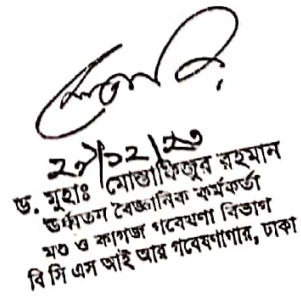 ড. মুহাঃ মোস্তাফিজুর রহমান
ঊর্ধ্বতন বৈজ্ঞানিক কর্মকর্তা
মণ্ড ও কাগজ গবেষণা বিভাগ
বি সি এস আই আর গবেষণাগার, ঢাকা